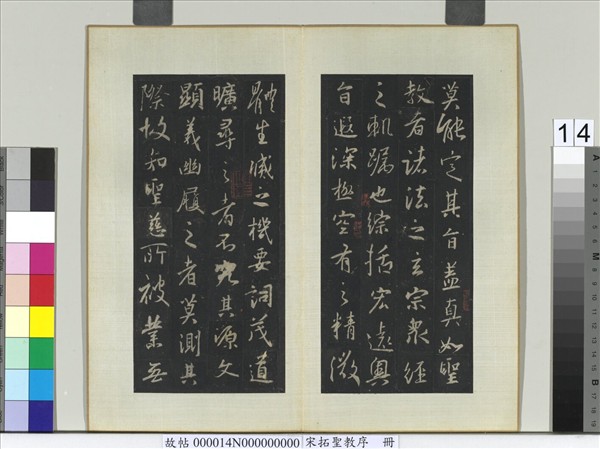 莫能定其旨蓋真如聖
教者諸法之玄宗眾經
之軌躅也綜括宏遠奧
旨遐深極空有之精微
體生滅之機要詞茂道
曠尋之者不究其源文
顯義幽履之者莫測其
際故知聖慈所被業無
14
故帖 000014N000000000 宋拓聖教序 冊